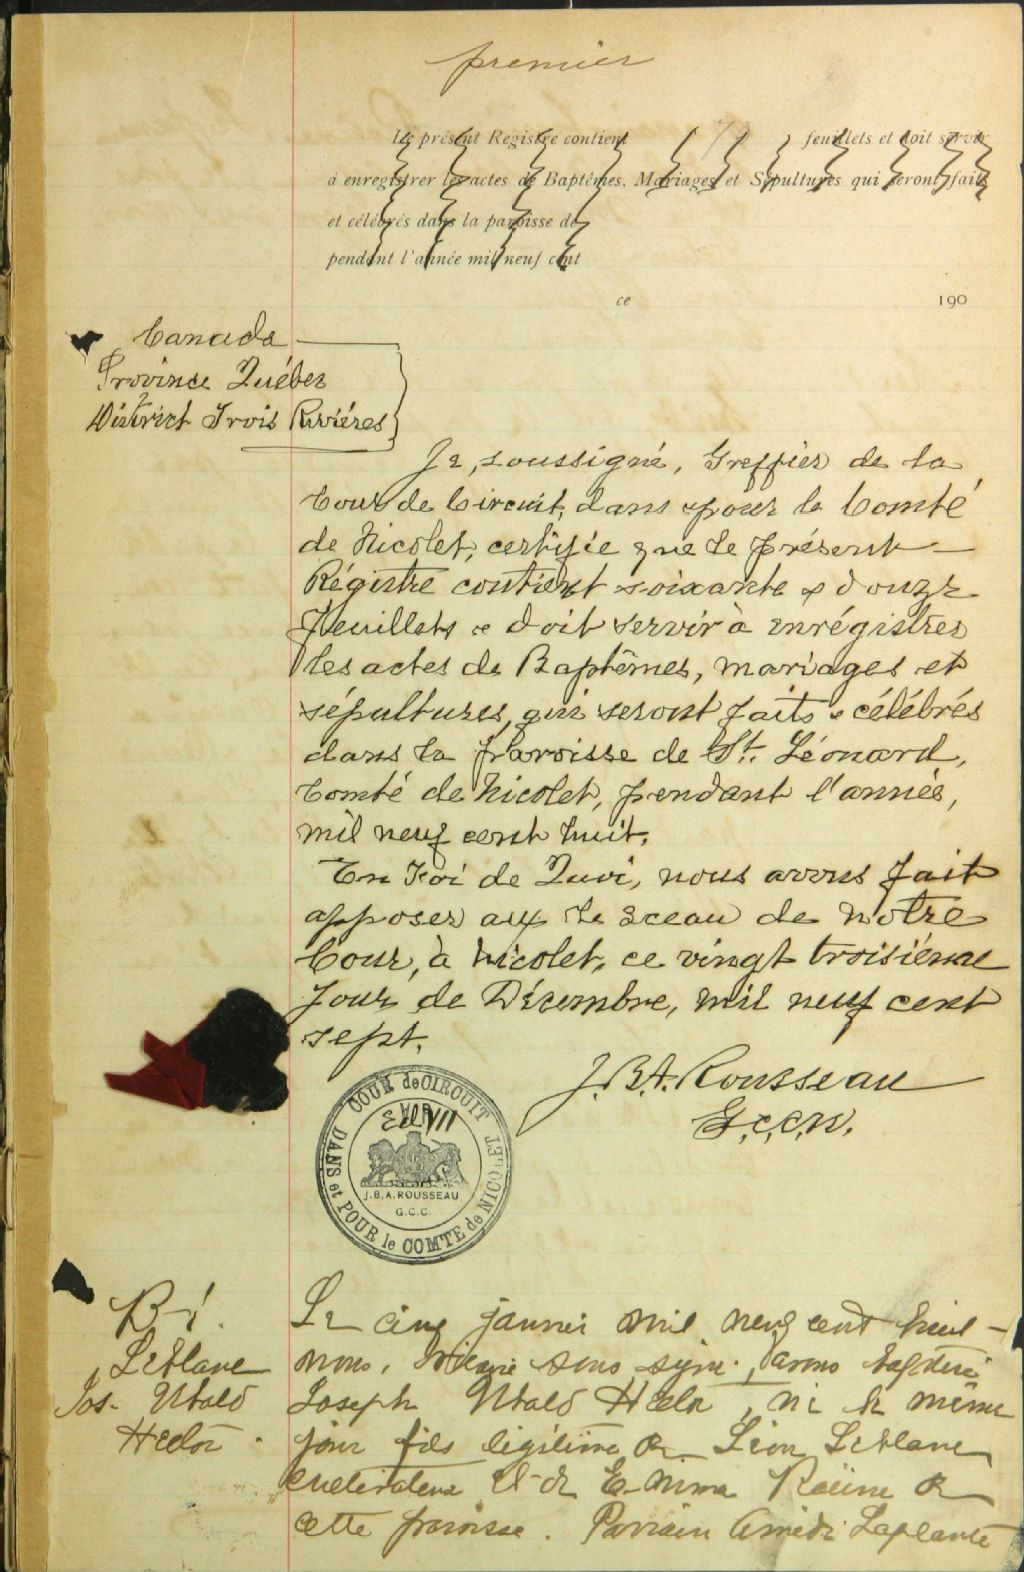 premier
Le présent Registre contient 72 feuillets et doit servir
à enregistrer les actes de Baptêmes, Mariages et Sépultures qui seront faits
et célébrés dans la paroisse de
pendant l'année mil neuf cent
ce 190
Canada
Province Québec
District Trois Rivières
Je, soussigné, Greffier de la
Cour de Circuit, dans & pour le Comté
de Nicolet, certifie que le présent
Régistre contient soixante & douze
feuillets & doit servir à enrégistrer
les actes de Baptêmes, mariages et
sépultures, qui seront faits & célébrés
dans la paroisse de St. Léonard,
Comté de Nicolet, pendant l'année,
mil neuf cent huit.
En Foi de Quoi, nous avons fait
apposer aux le sceau de notre
Cour, à Nicolet, ce vingt troisième
jour de Décembre, mil neuf cent
sept.
J. B. A. Rousseau
G.C.C.N.
COUR de CIRCUIT
DANS et POUR le COMTE de NICOLET
Ed VII
J.B.A. ROUSSEAU
G.C.C.
B-1.
Leblanc
Jos. Ubald
Hector.
Le cinq janvier mil neuf cent huit
nous, vicaire sous signé, avons baptisé
Joseph Ubald Hector, né le même
jour fils légitime de Léon Leblanc
cultivateur et de Emma
cette paroisse. Parrain Amédé Laplante